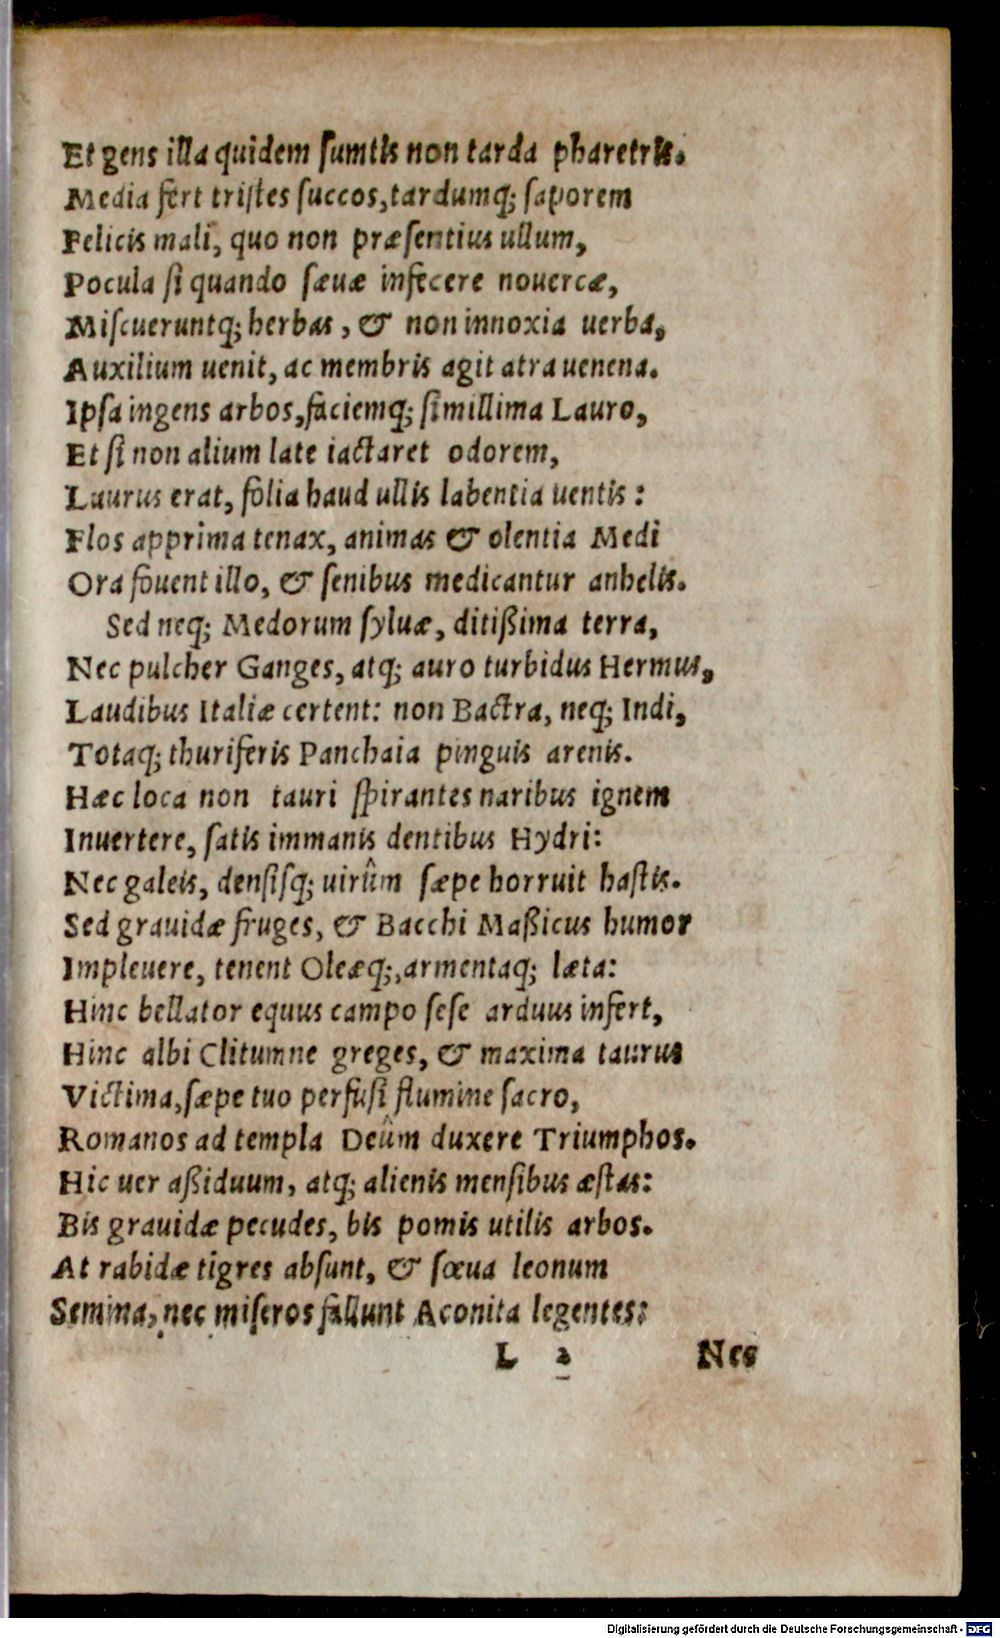 Et gens illa quidem sumtis non tarda pharetris.
Media fert tristes succos, tardumq; saporem
Felicis mali, quo non præsentius ullum,
Pocula si quando sæuæ infecere nouercæ,
Miscueruntq; herbas, & non innoxia uerba,
Auxilium uenit, ac membris agit atra uenena.
Ipsa ingens arbos, faciemq; simillima Lauro,
Et si non alium late iactaret odorem,
Laurus erat, folia haud ullis labentia uentis:
Flos apprima tenax, animas & olentia Medi
Ora fouent illo, & senibus medicantur anhelis.
Sed neq; Medorum syluæ, ditißima terra,
Nec pulcher Ganges, atq; auro turbidus Hermus,
Laudibus Italiæ certent: non Bactra, neq; Indi,
Totaq; thuriferis Panchaia pinguis arenis.
Hæc loca non tauri spirantes naribus ignem
Inuertere, satis immanis dentibus Hydri:
Nec galeis, densisq; uirûm sæpe horruit hastis.
Sed grauidæ fruges, & Bacchi Maßicus humor
Impleuere, tenent Oleæq;, armentaq; læta:
Hinc bellator equus campo sese arduus infert,
Hinc albi Clitumne greges, & maxima taurus
Victima, sæpe tuo perfusi flumine sacro,
Romanos ad templa Deûm duxere Triumphos.
Hic uer aßiduum, atq; alienis mensibus æstas:
Bis grauidæ pecudes, bis pomis utilis arbos.
At rabidæ tigres absunt, & sœua leonum
Semina, nec miseros fallunt Aconita legentes:
L 2 Nec
Digitalisierung gefördert durch die Deutsche Forschungsgemeinschaft - DFG